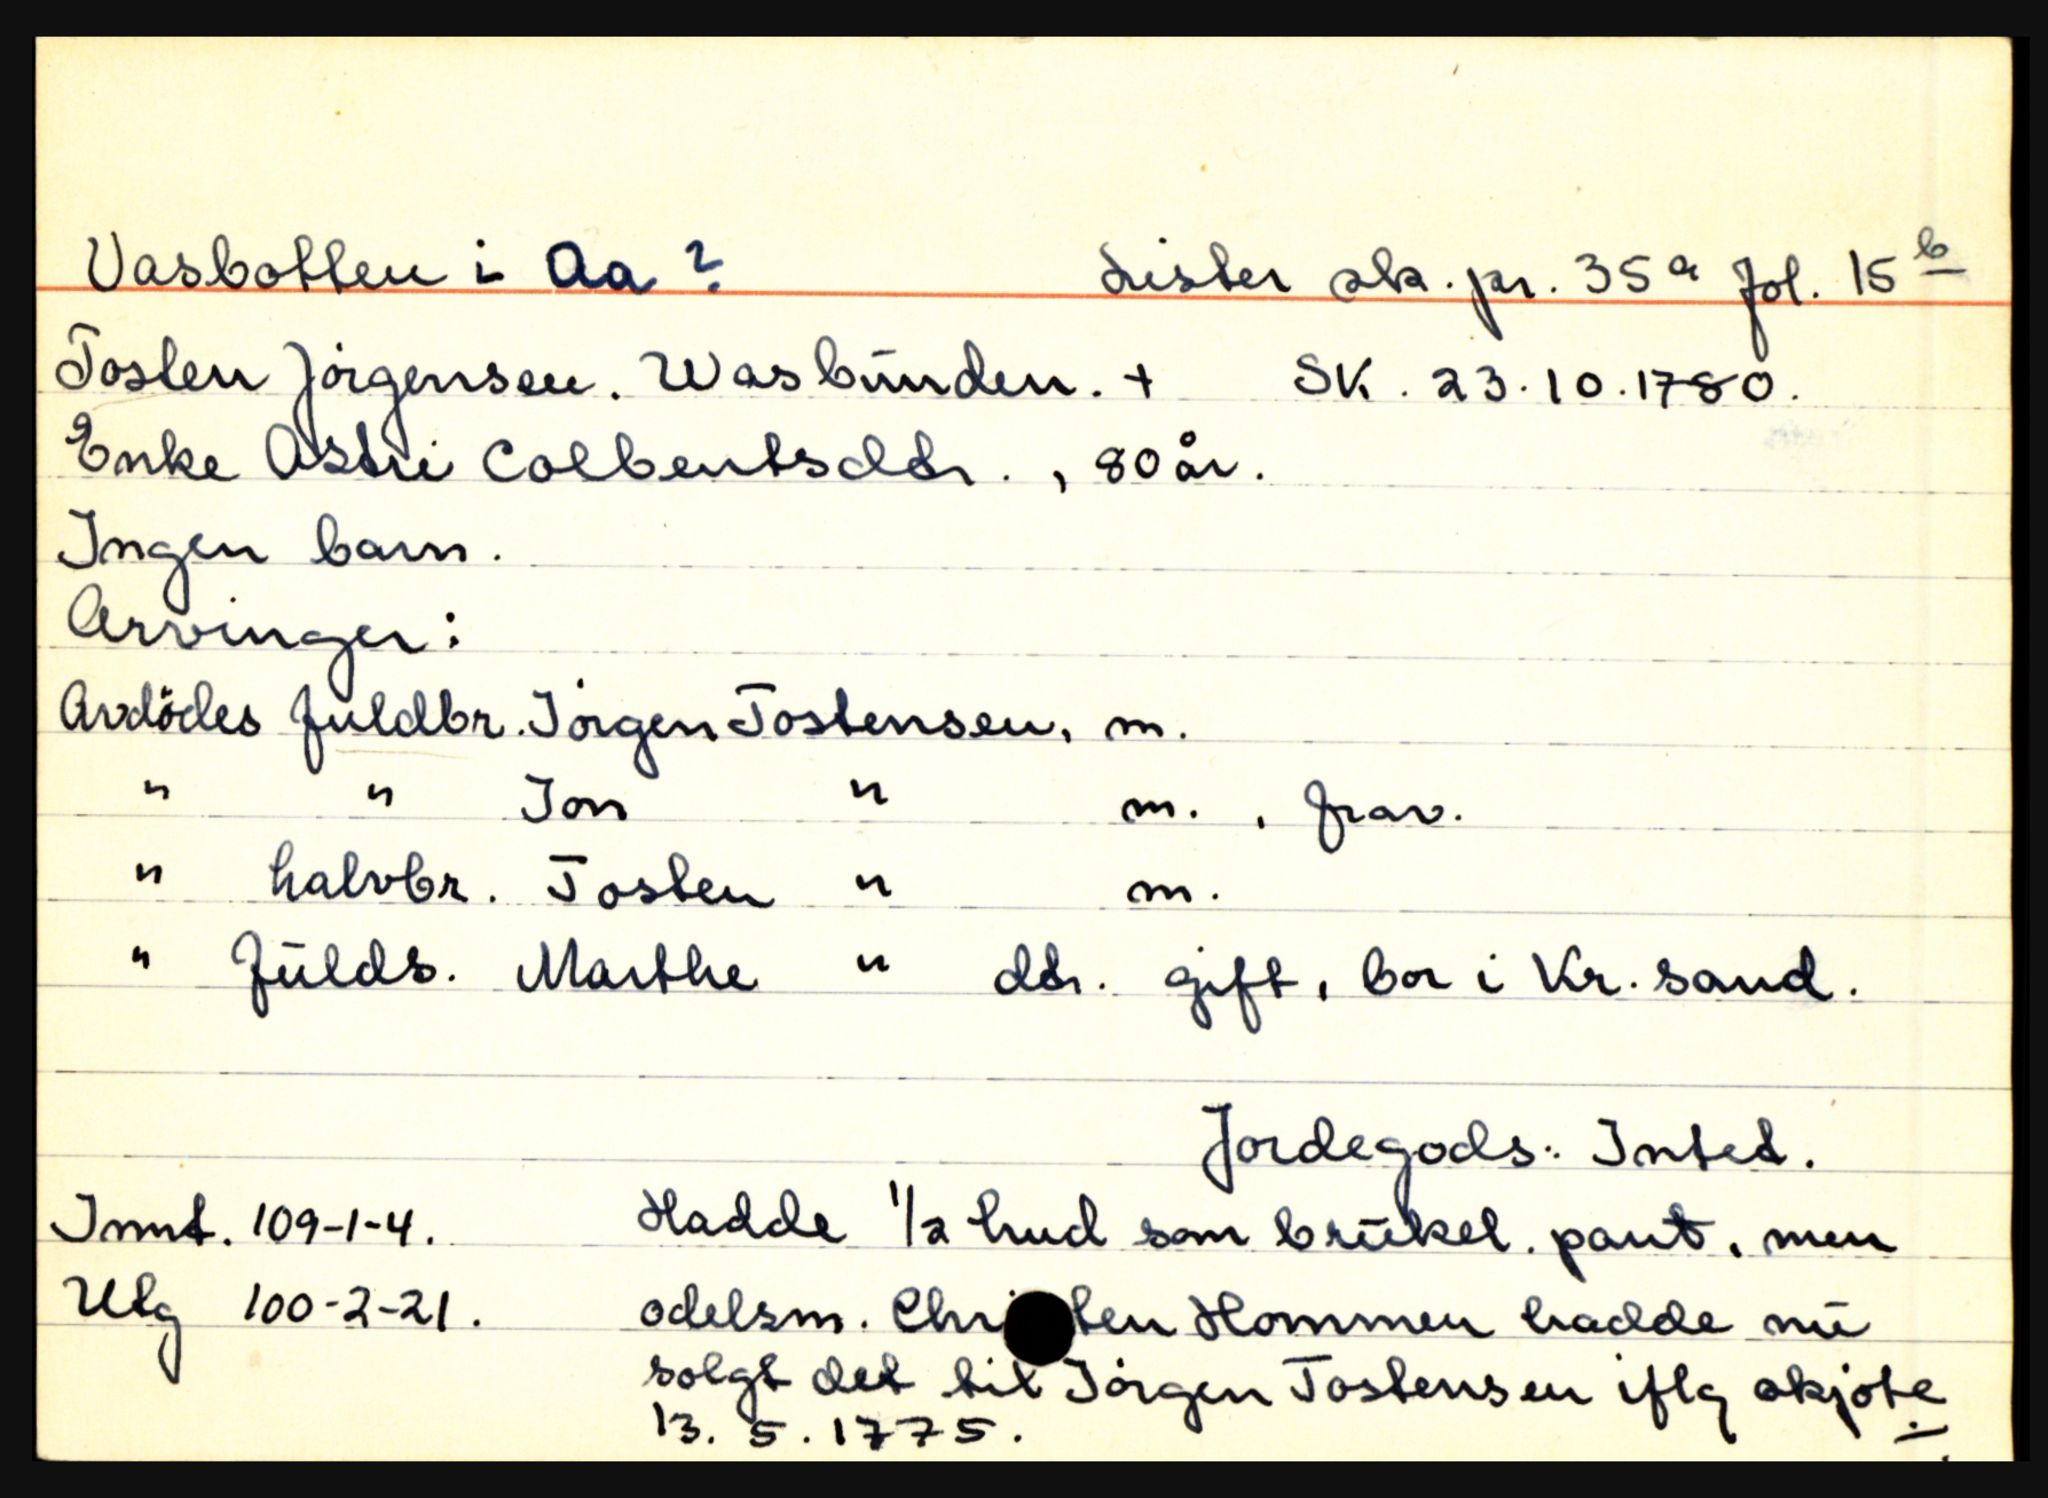 Vasbotten i Aa ? Lister sk. pr. 35a fol. 15b
Tosten Jörgensen. Wasbunden. + SK. 23.10.1780.
Enke Astri Colbentsdtr., 80 år.
Ingen barn.
Arvinger:
Avdödes fuldbr. Jörgen Tostensen, m.
" " Jon " m., frav.
" halvbr. Tosten " m.
" fulds. Marthe " dtr. gift, bor i Kr. sand.
Jordegods: Intet.
Innt. 109-1-4. Hadde 1/2 hud som brukel. pant, men
Utg 100-2-21. odelsm. Chri ten Hommen hadde nu
solgt det til Jörgen Tostensen iflg skjöte
13. 5. 1775.